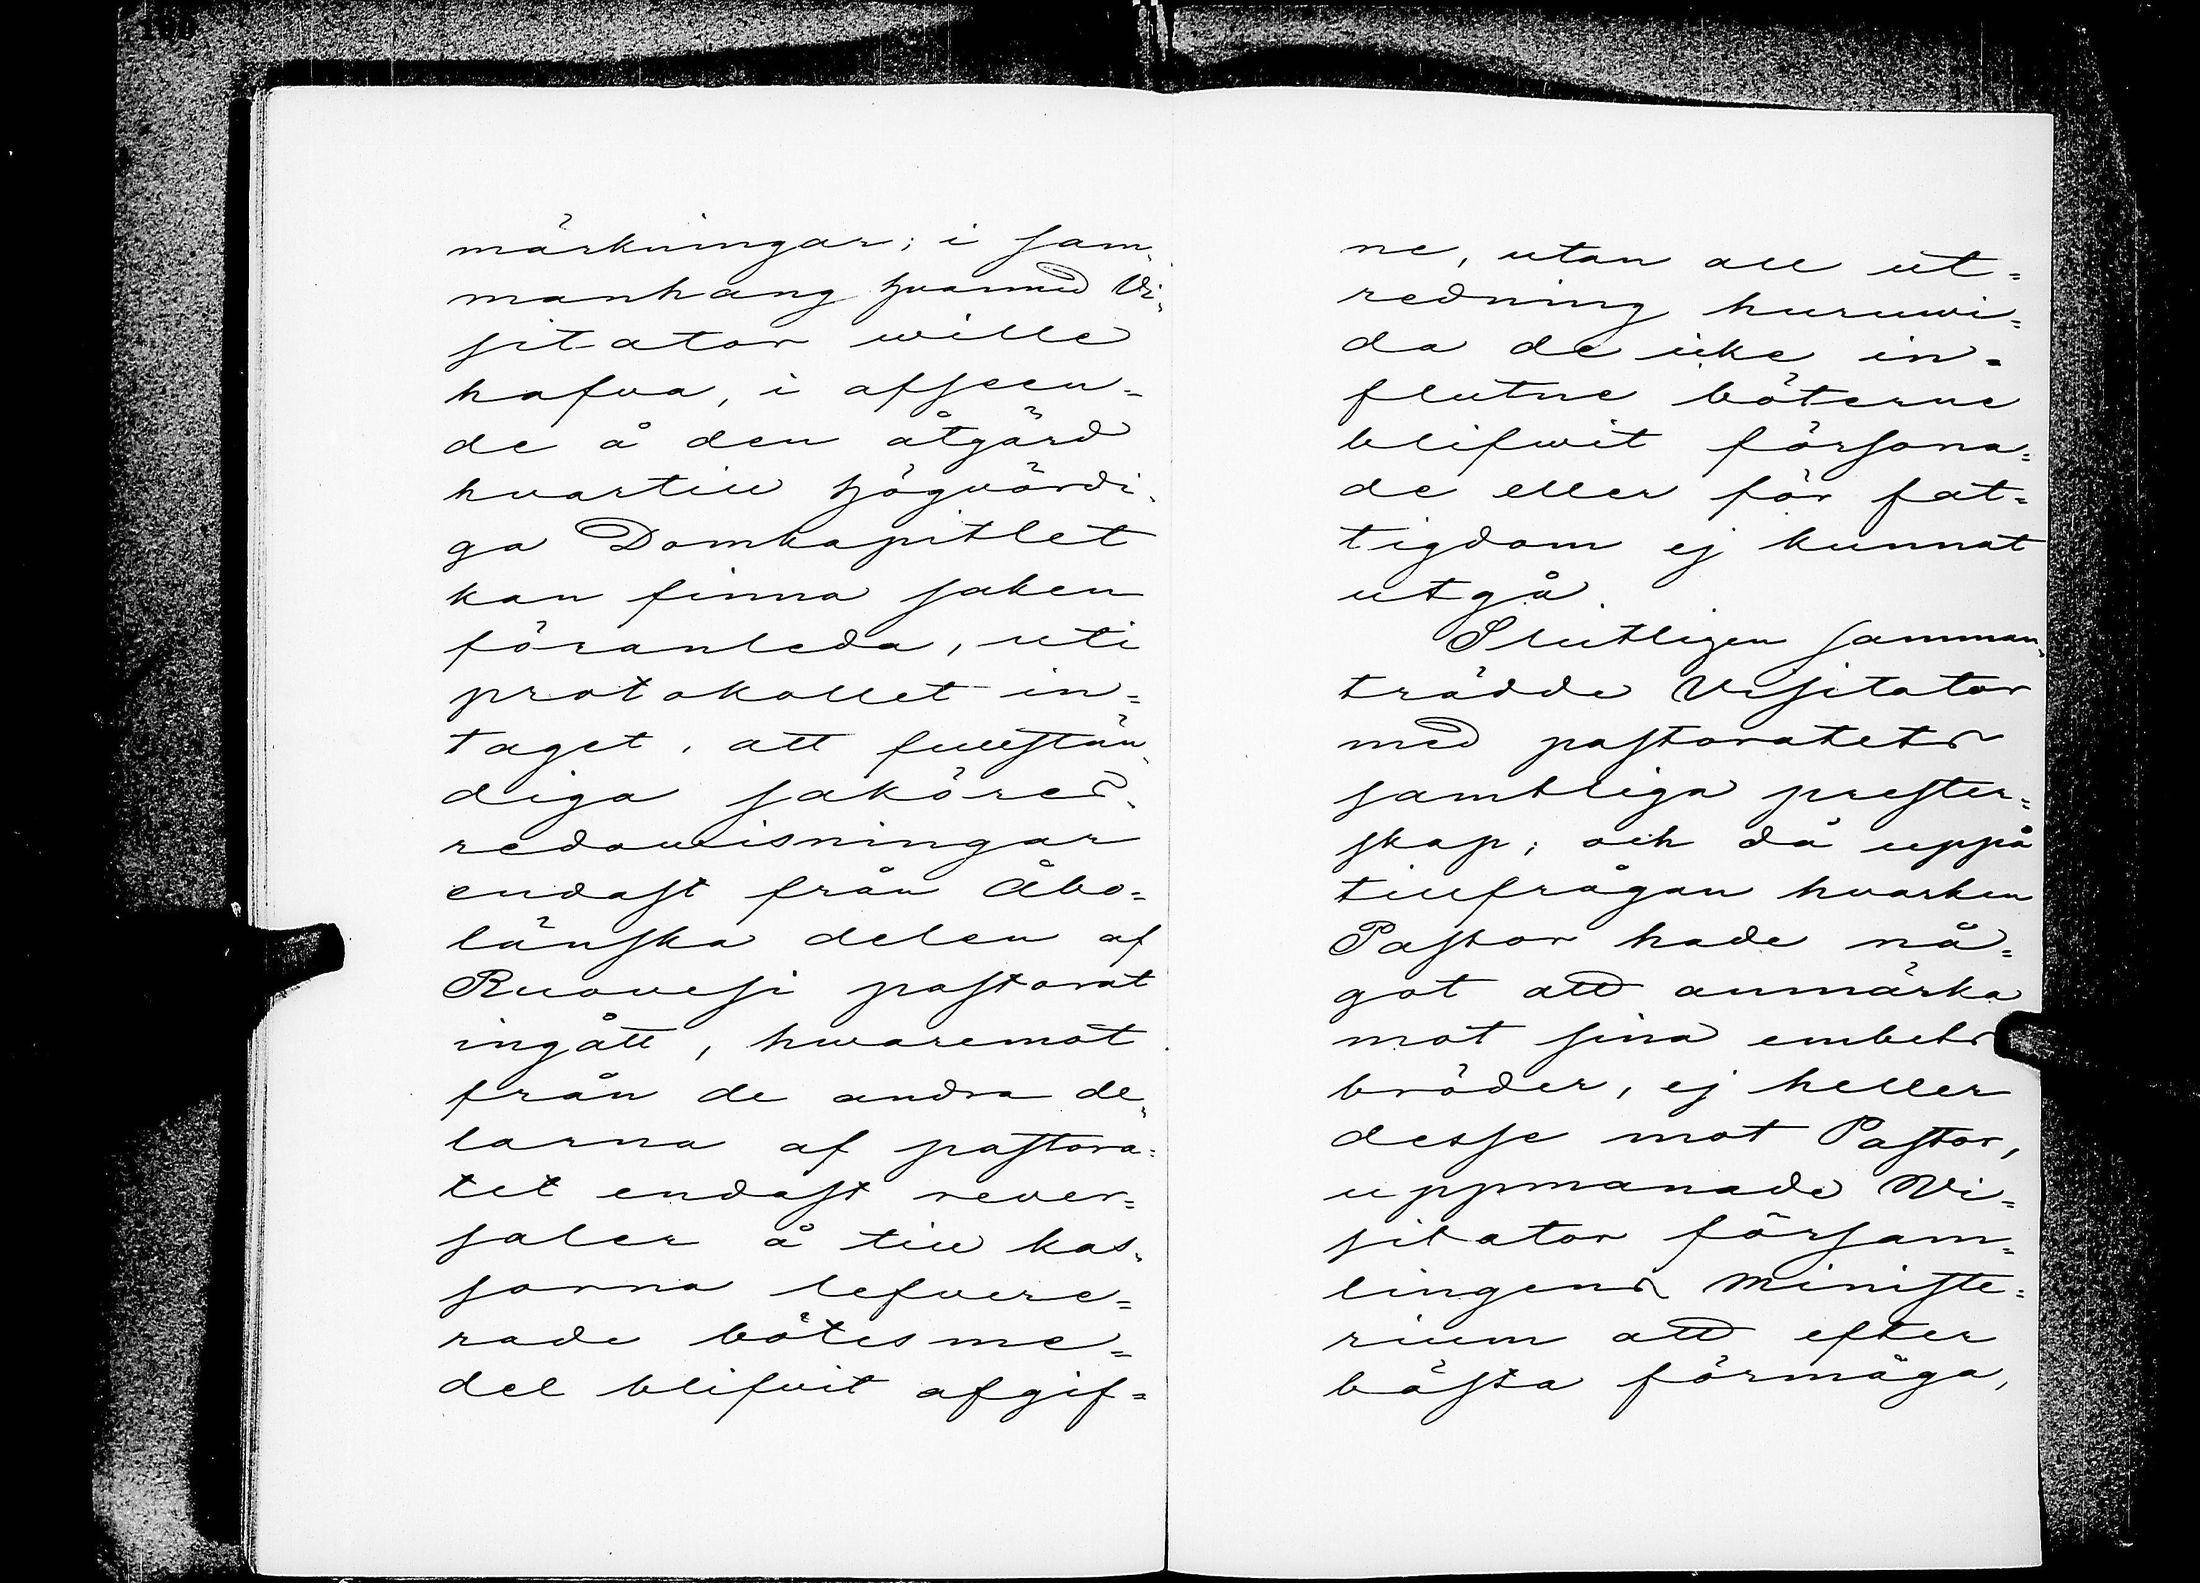 märkningar; i sam-
manhang hvarmed Vi-
sitator wille
hafva, i afseen-
de å den åtgärd
hvartill högvördi-
ga Domkapitlet
kan finna saken
föranleda, uti
protokollet in-
taget, att fullstän-
diga saköres-
redowisningar
endast från Åbo-
länska delen af
Ruovesi pastorat
ingått, hwaremot
från de andra de-
larna af pastora-
tet endast rever-
saler å till kas-
sorna lefvere-
rade bötesme-
del blifvit afgif-
ne, utan all ut-
redning huruwi-
da de icke in-
flutne böterne
blifwit försona-
de eller för fat-
tigdom ej kunnat
utgå.
Slutligen samman-
trädde Visitator
med pastoratets
samtliga prester-
skap; och då uppå
tillfrågan hvarken
Pastor hade nå-
got att anmärka
mot sina embets
bröder, ej heller
desse mot Pastor,
uppmanade Vi-
sitator försam-
lingens Ministe-
rium att efter
bästa förmåga,